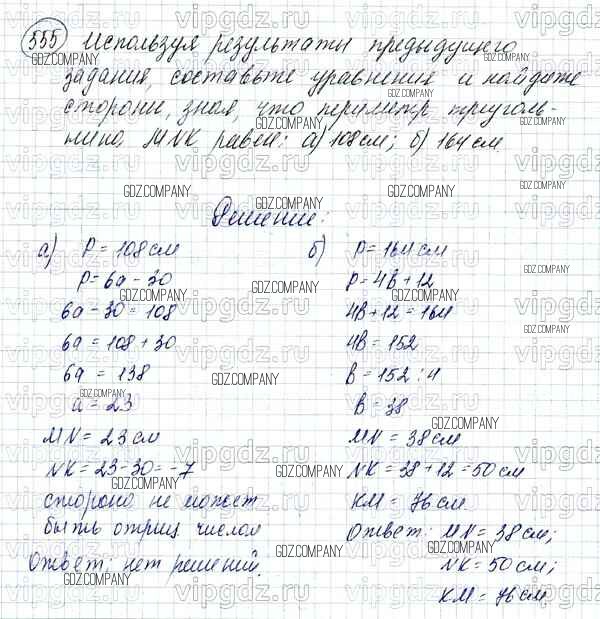 555 Используя результаты предыдущего
задания, составьте уравнение и найдите
стороны, зная, что периметр треуголь-
ника MNK равен: а) 108 см; б) 164 см.
Решение:
а) P = 108 см
P = 6a - 30
6a - 30 = 108
6a = 108 + 30
6a = 138
a = 23
MN = 23 см
NK = 23 - 30 = -7
сторона не может
быть отриц. числом
Ответ: нет решений.
б) P = 164 см
P = 4B + 12
4B + 12 = 164
4B = 152
B = 152 : 4
B = 38
MN = 38 см
NK = 38 + 12 = 50 см
KM = 76 см.
Ответ: MN = 38 см;
NK = 50 см;
KM = 76 см
vipgdz.ru
GDZ.COMPANY